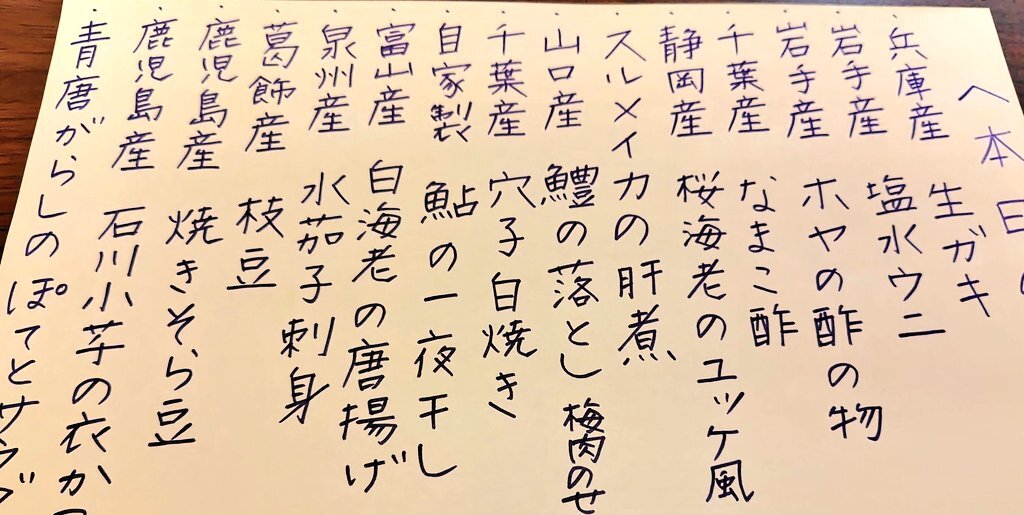 〈本日の
・兵庫産 生ガキ
・岩手産 塩水ウニ
・岩手産 ホヤの酢の物
・千葉産 なまこ酢
・静岡産 桜海老のユッケ風
・スルメイカの肝煮
・山口産 鱧の落とし 梅肉のせ
・千葉産 穴子白焼き
・自家製 鮎の一夜干し
・富山産 白海老の唐揚げ
・泉州産 水茄子刺身
・葛飾産 枝豆
・鹿児島産 焼きそら豆
・鹿児島産 石川小芋の衣か
・青唐がらしのぽてとサラダ